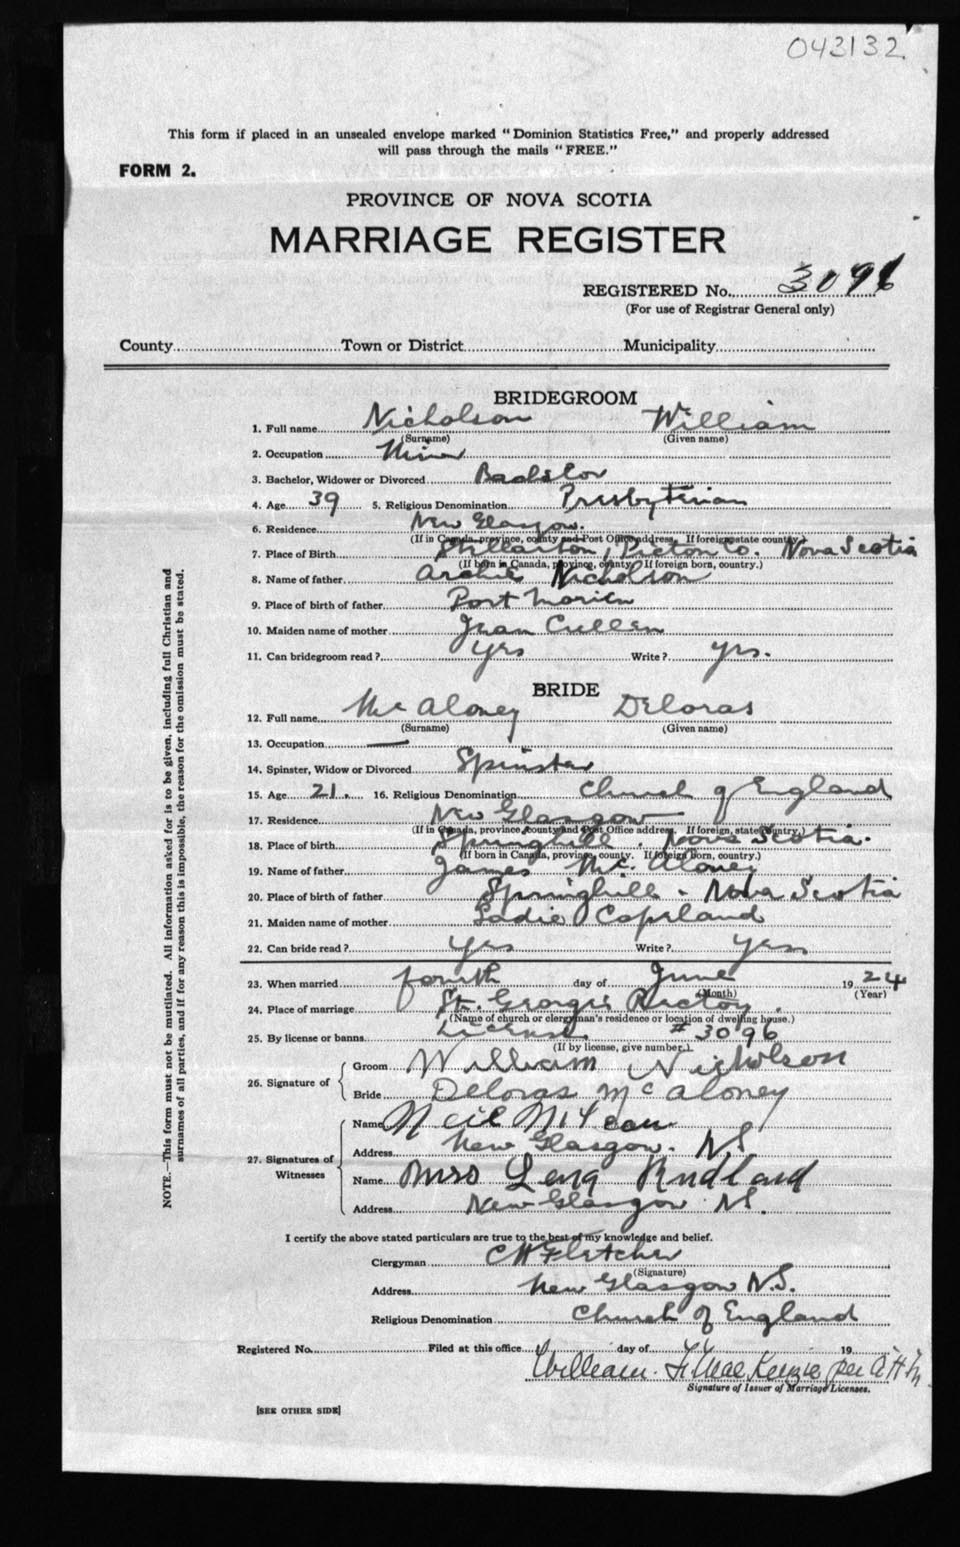 043132
This form if placed in an unsealed envelope marked "Dominion Statistics Free," and properly addressed
will pass through the mails "FREE."
FORM 2.
PROVINCE OF NOVA SCOTIA
MARRIAGE REGISTER
REGISTERED No. 3096
(For use of Registrar General only)
County Town or District Municipality
BRIDEGROOM
1. Full name Nicholson William
(Surname) (Given name)
2. Occupation Miner
3. Bachelor, Widower or Divorced Bachelor
4. Age 39 5. Religious Denomination Presbyterian
6. Residence New Glasgow.
(If in Canada, province, county and Post Office address. If foreign state country.)
7. Place of Birth Stellarton, Pictou Co. Nova Scotia
(If born in Canada, province, county. If foreign born, country.)
8. Name of father Archie Nicholson
9. Place of birth of father Port Morien
10. Maiden name of mother Jean Cullen
11. Can bridegroom read? yes Write? yes.
BRIDE
12. Full name Mc Aloney Deloras
(Surname) (Given name)
13. Occupation —
14. Spinster, Widow or Divorced Spinster
15. Age 21. 16. Religious Denomination Church of England
17. Residence New Glasgow
(If in Canada, province county and Post Office address. If foreign, state country.)
18. Place of birth Springhill. Nova Scotia.
(If born in Canada, province, county. If foreign born, country.)
19. Name of father James Mc Aloney
20. Place of birth of father Springhill - Nova Scotia
21. Maiden name of mother Sadie Copeland
22. Can bride read? yes Write? yes
23. When married fourth day of June 1924
(Month) (Year)
24. Place of marriage St. George's Rectory.
(Name of church or clergyman's residence or location of dwelling house.)
25. By license or banns License # 3096
(If by license, give number.)
26. Signature of Groom William Nicholson
Bride Deloras McAloney
27. Signatures of Witnesses Name Neil
Address New Glasgow. N.S.
Name Mrs Lena Rudland
Address New Glasgow N.S.
I certify the above stated particulars are true to the best of my knowledge and belief.
Clergyman C H Fletcher
(Signature)
Address New Glasgow N.S.
Religious Denomination Church of England
Registered No. Filed at this office day of 19
William. MacKenzie per
Signature of Issuer of Marriage Licenses.
[SEE OTHER SIDE]
NOTE.—This form must not be mutilated. All information asked for is to be given, including full Christian and
surnames of all parties, and if for any reason this is impossible, the reason for the omission must be stated.